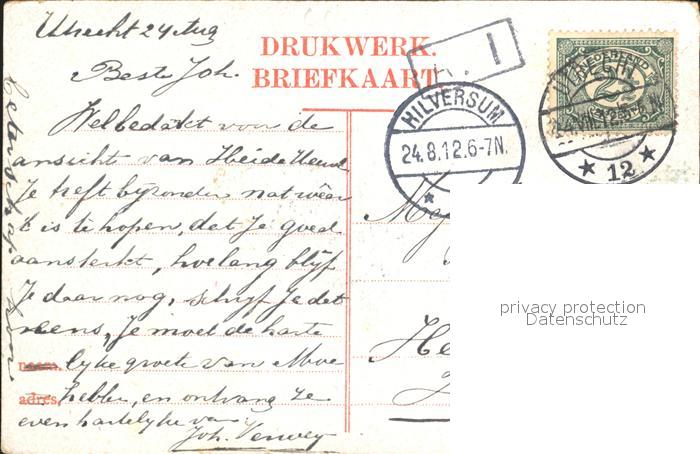 Utrecht 24 Aug
DRUKWERK.
BRIEFKAART.
1
Beste Joh.
Welbedakt voor de
ansicht van Heideheuvel
Je heft byzonder nat wéer
't is te hopen, det Je goed
aansterkt, hoelang blijf
Je daar nog, schrijf Je det
eens, Je moet de harte
naam.
lyke groete van Moe
adres.
hebbe, en ontvang ze
even hartelyke van
Joh. Verwey
HILVERSUM
24.8.12.6-7N.
NEDERLAND
2½
12
privacy protection
Datenschutz